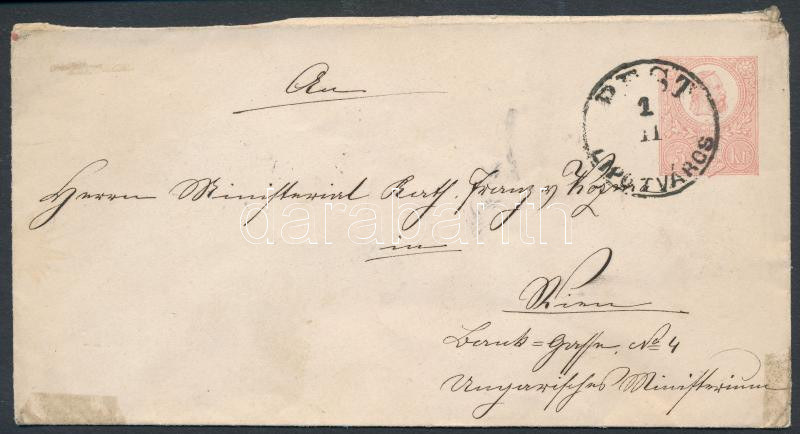 An
PEST
1
II
LIPÓTVÁROS
Kr
Herrn Ministerial Rath. Franz v
darabanth
in
Wien
Bank=Gasse. No 4
Ungarisches Ministerium